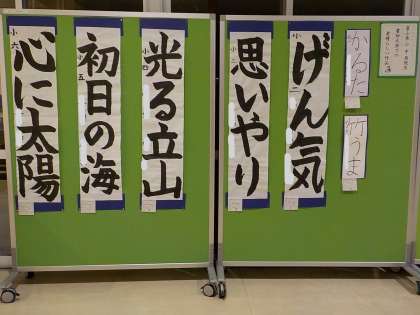 かるた
竹うま
小一
げん気
小三
思いやり
小四
光る立山
小五
初日の海
小六
心に太陽